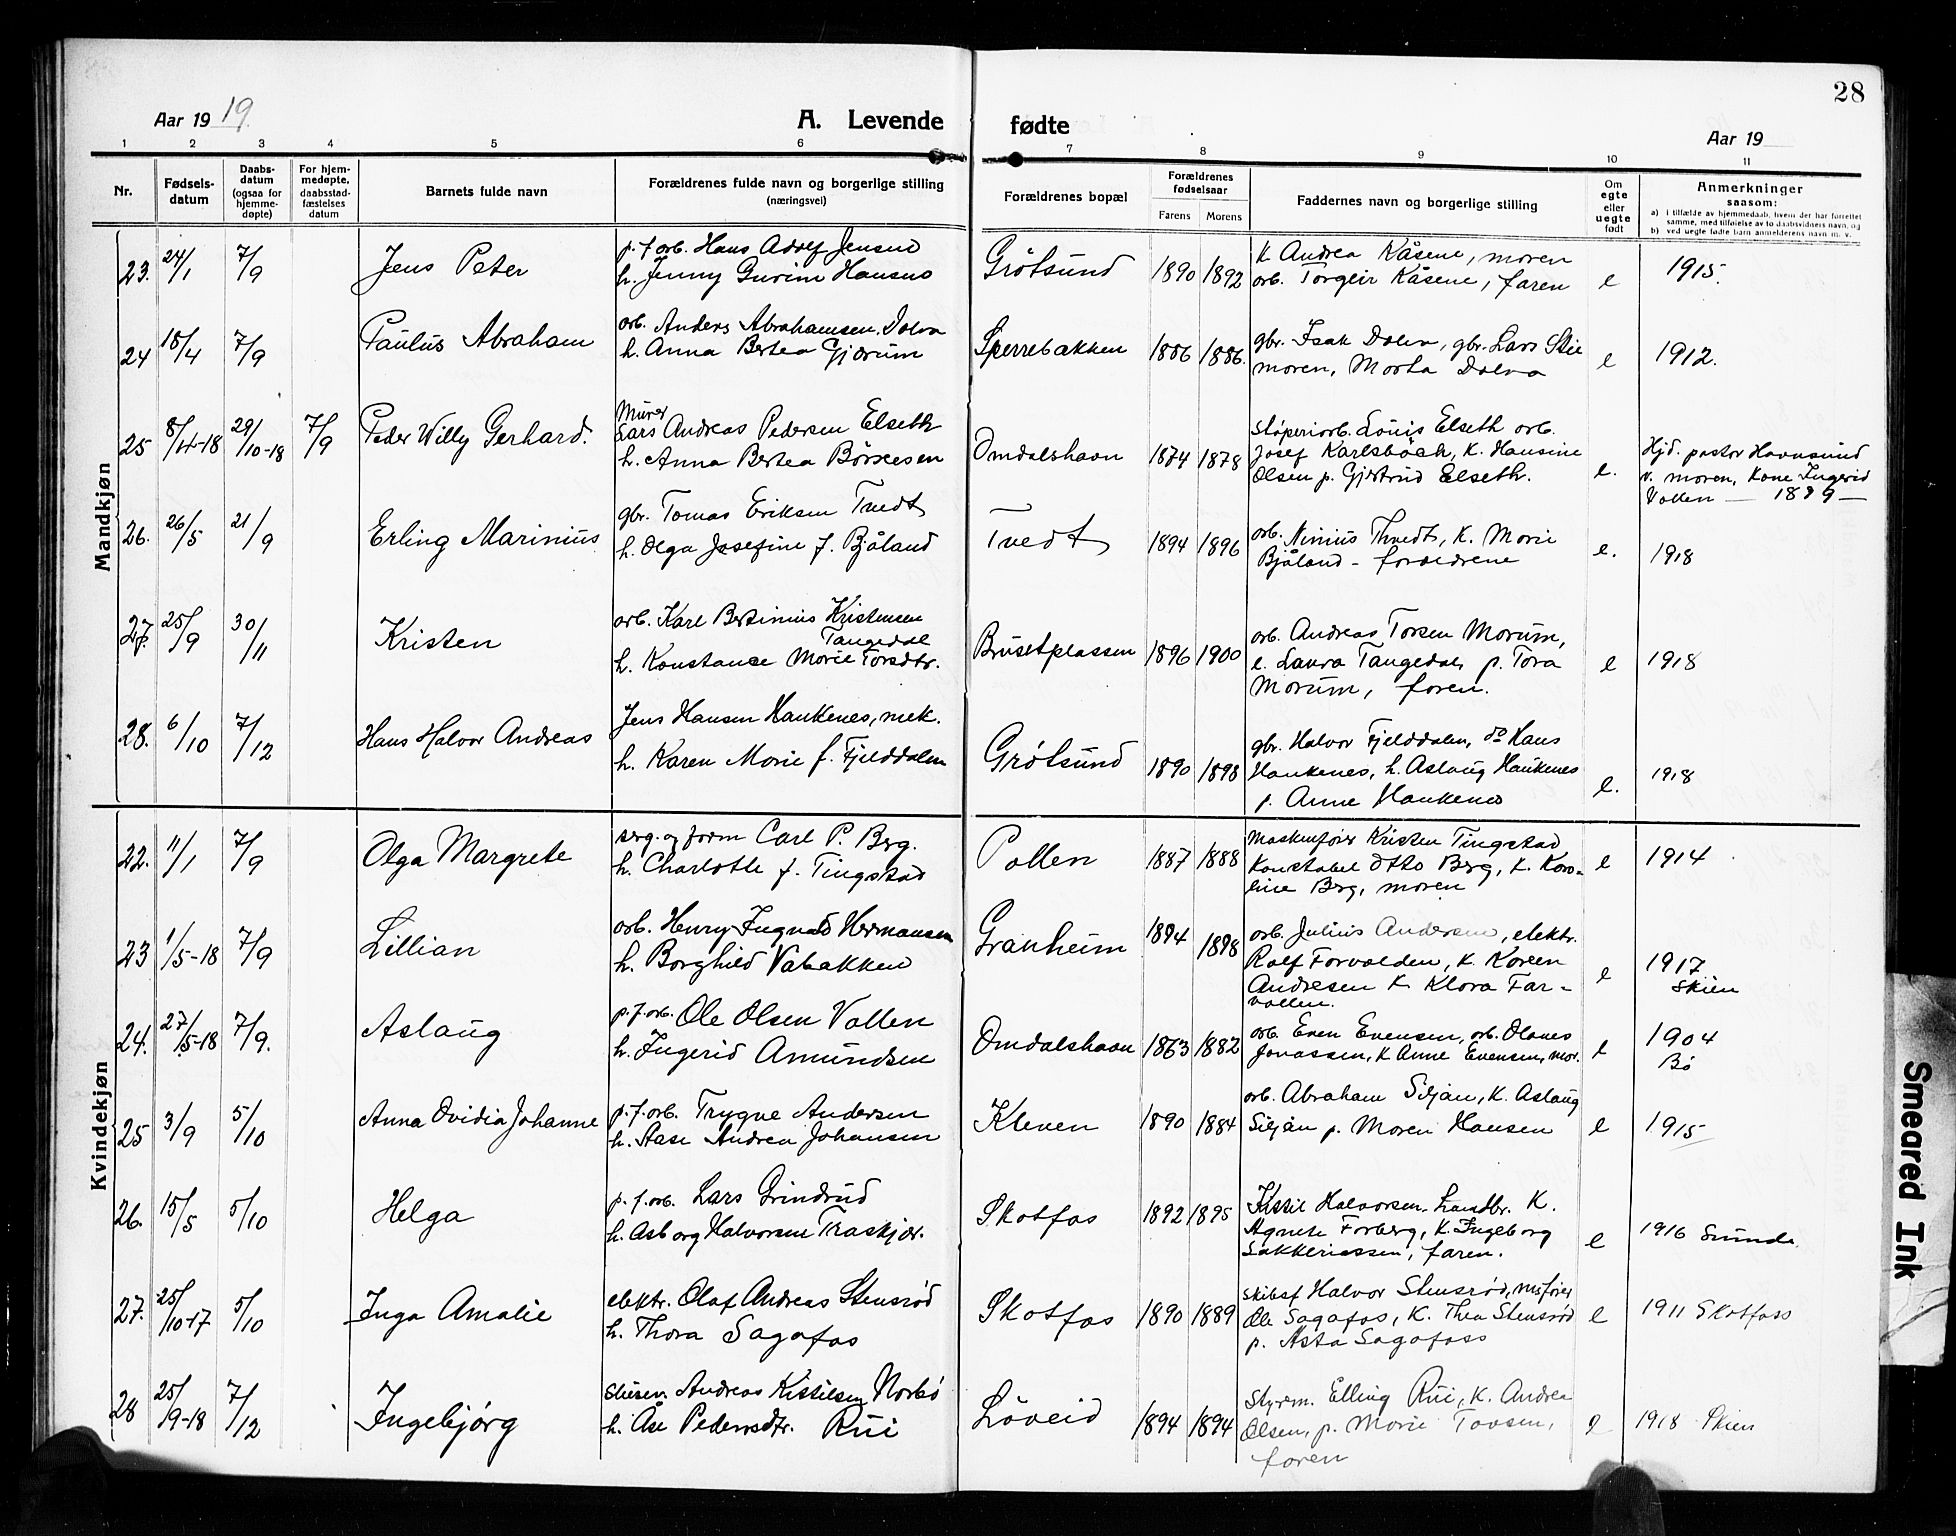 28
Aar 1919.
A. Levende fødte
Aar 19
1 2 3 4 5 6 7 8 9 10 11
Nr.
Fødselsdatum
Daabsdatum (ogsaa for hjemmedøpte)
For hjemmedøpte, daabsstadfæstelses datum
Barnets fulde navn
Forældrenes fulde navn og borgerlige stilling (næringsvei)
Forældrenes bopæl
Forældrenes fødselsaar
Farens Morens
Faddernes navn og borgerlige stilling
Om egte eller uegte født
Anmerkninger saasom:
a) i tilfælde av hjemmedaab, hvem der har forrettet samme, med tilføielse av to daabsvidners navn, og
b) ved uegte fødte barn anmelderens navn m. v.
Mandkjøn
23. 24/1 7/9 Jens Peter
p. f. orb. Hans Adolf Jensen
h. Jenny Gurine Hansens
Grötsund 1890 1892
K Andrea Kåsene, moren
orb. Torgeir Kåsene, faren
e 1915.
24 18/4 7/9 Paulus Abraham
orb. Anders Abrahamsen Dolva
h. Anna Bertea Gjærum
Sperrebakken 1886 1886.
gbr. Isak Dolva, gbr. Lars Stie
moren, Marta Dolva
e 1912.
25 8/4-18 29/10-18 7/9 Peder Willy Gerhard.
Murer
Lars Andreas Pedersen Elseth
h. Anna Bertea Börresen
Omdalshavn 1874 1878
Støperiarb. Louis Elseth orb.
Josef Karlsböck, K. Hansine
Olsen p. Gjertrud Elseth.
e.
Hjd. pastor Havnsund
v. moren, Kone Ingerid
Vollen — 1899 —
26. 26/5 21/9 Erling Marinius
gbr. Tomas Eriksen Tvedt
h. Olga Josefine f. Bjåland
Tvedt 1894 1896
orb. Ninius Thvedt, K. Marie
Bjåland - foreldrene
e. 1918
27. 25/9 30/11 Kristen
orb. Karl Bertinius Kristensen
Tangedal
h. Konstanse Marie Torsdtr.
Brusetplassen 1896 1900
orb. Andreas Torsen Morum,
e. Laura Tangedal, p. Tora
Morum, faren.
e 1918
28. 6/10 7/12 Hans Halvor Andreas
Jens Hansen Haukenes, mek.
h. Karen Marie f. Fjelddalen
Grötsund 1890 1898
gbr. Halvor Fjelddalen, do Hans
Haukenes, h. Aslaug Haukenes
p. Anne Haukenes
e. 1918
Kvindekjøn
22. 11/1 7/9 Olga Margrete
serg. og form Carl P. Berg.
h. Charlotte f. Tingstad
Pollen 1887 1888
Maskenfører Kristen Tingstad
Konstabel Otto Berg, K. Karo-
line Berg, moren
e 1914
23 1/5-18 7/9 Lillian
orb. Henry Ingvald Hermansen
h. Borghild Vabakken
Granheim 1894 1898
orb. Julius Andersen, elektr.
Ralf Forvolden, K. Koreen
Andresen K Klara Far-
vollen.
e 1917 Skien
24. 27/5-18 7/9. Aslaug
p. f. orb. Ole Olsen Vollen
h. Ingerid Amundsen
Omdalshavn 1863 1882
orb. Even Evensen, orb. Olaves
Jonassen, K Anne Evensen, mor.
e 1904 Bö
25 3/9 5/10 Anna Ovidia Johanne
p. f. orb. Trygve Andersen
h. Aase Andrea Johansen
Kleven 1890 1884
orb. Abraham Siljan, K. Aslaug
Siljan p. Moren Hansen
e 1915
26. 15/5 5/10 Helga
p. f. orb. Lars Grindrud
h. Asborg Halvorsen Traskjær.
Skotfos 1892 1895
Kittil Halvorsen, Landbr. K.
Agnete Forberg, K. Ingeborg
Sakkeriassen, faren.
e 1916 Sunde.
27. 25/10-17 5/10 Inga Amalie
elektr. Olaf Andreas Stensrød
h. Thora Sagafos
Skotfos 1890 1889
Skibsf Halvor Stensrød, msfører
Ole Sagafos, K. Thea Stensrød
p. Asta Sagafoss
e 1911 Skotfoss
28 25/9-18 7/12 Ingebjörg
Andreas Kittilsen Norbö
h. Åse Pedersdtr. Rui
Löveid 1894 1894
Styrm. Elling Rui, K. Andrea
Olsen, p. Marie Tovsen,
faren
e 1918 Skien
Smeared Ink